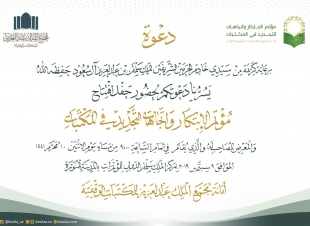 مؤتمر الابتكار واتجاهات
التجديد في المكتبات
دعوة
برعاية كريمة من سيدي خادم الحرمين الشريفين الملك سلمان بن عبدالعزيز آل سعود حفظه الله
يسرنا دعوتكم لحضور حفل افتتاح
مؤتمر الابتكار واتجاهات التجديد في المكتبات
والمعرض المصاحب له والذي يقام في تمام الساعة ٧:٠٠ من مساء يوم الاثنين ١٠ محرم ١٤٤١
الموافق ٩ سبتمبر ٢٠١٩ بمركز الملك سلمان الدولي للمؤتمرات بالمدينة المنورة
أمانة مجمع الملك عبدالعزيز للمكتبات الوقفية